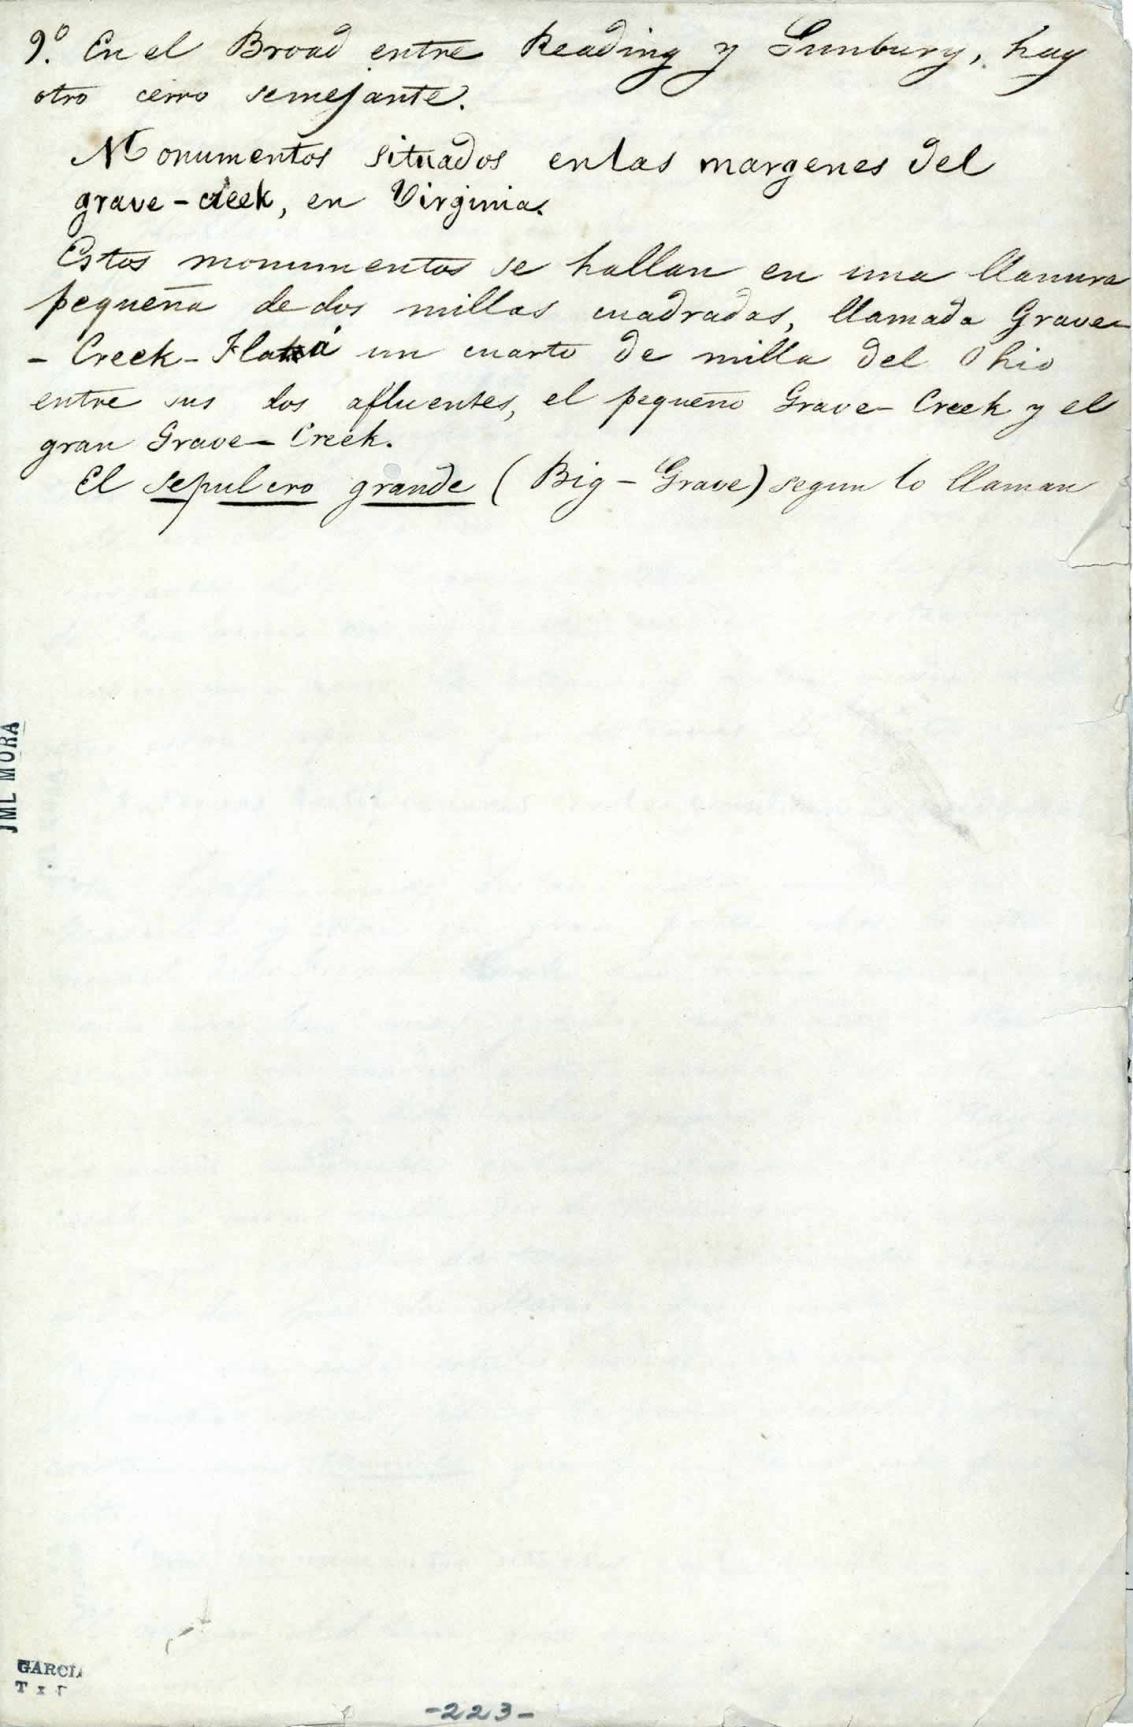 9.º En el Broad entre Reading y Sunbury, hay
otro cerro semejante.
Monumentos situados en las margenes del
grave-creek, en Virginia.
Estos monumentos se hallan en una llanura
pequeña de dos millas cuadradas, llamada Grave-
- Creek - Flat á un cuarto de milla del Ohio
entre sus dos afluentes, el pequeño Grave-Creek y el
gran Grave-Creek.
El sepulcro grande (Big-Grave) segun lo llaman
JML MORA
GARCIA
-223-